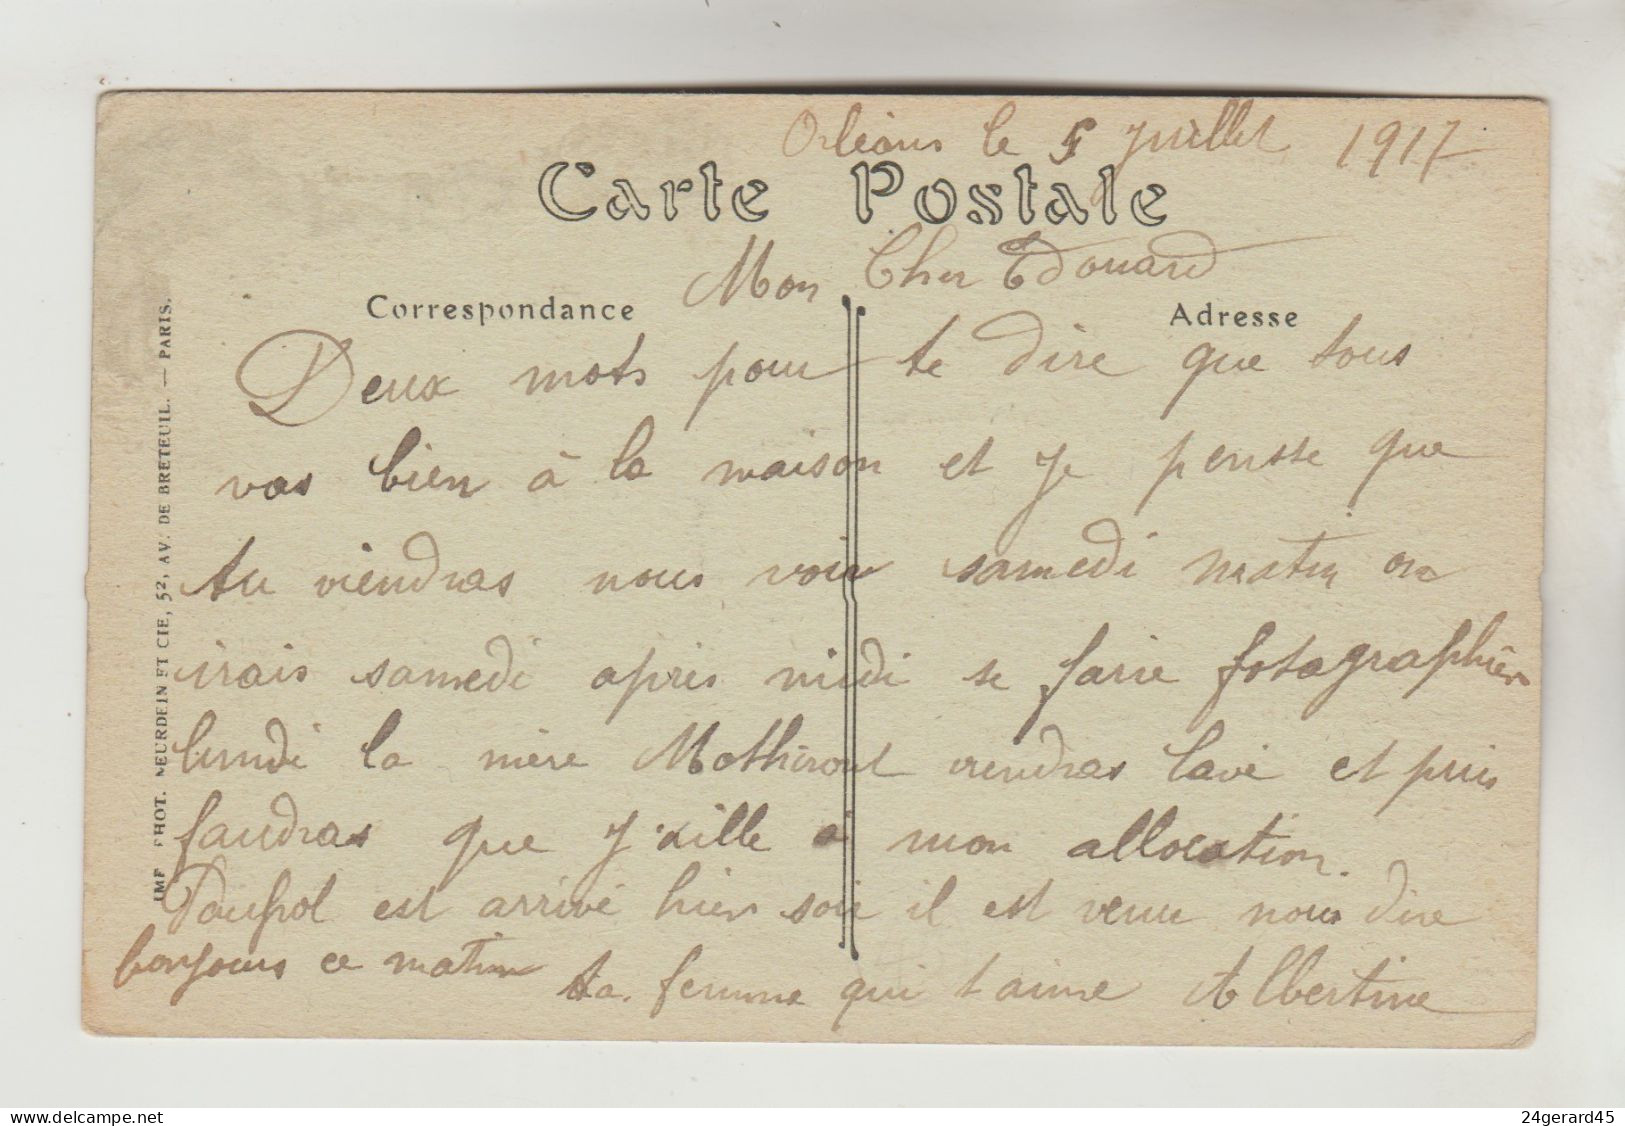 Orléans le 5 Juillet 1917
Carte Postale
Mon Cher Edouard
Correspondance
Adresse
Deux mots pour te dire que tous
vas bien à la maison et je pensse que
tu viendras nous voir samedi matin on
irais samedi apris midi se farie fotagraphier
lundi la mère viendras lavé et puis
faudras que J'aille a mon allocation.
est arrivé hier soir il est venu nous dire
bonjours ce matin
ta femme qui t aime Albertine
IMP. PHOT. NEURDEIN ET CIE, 52, AV. DE BRETEUIL. — PARIS.
delcampe.net
24gerard45